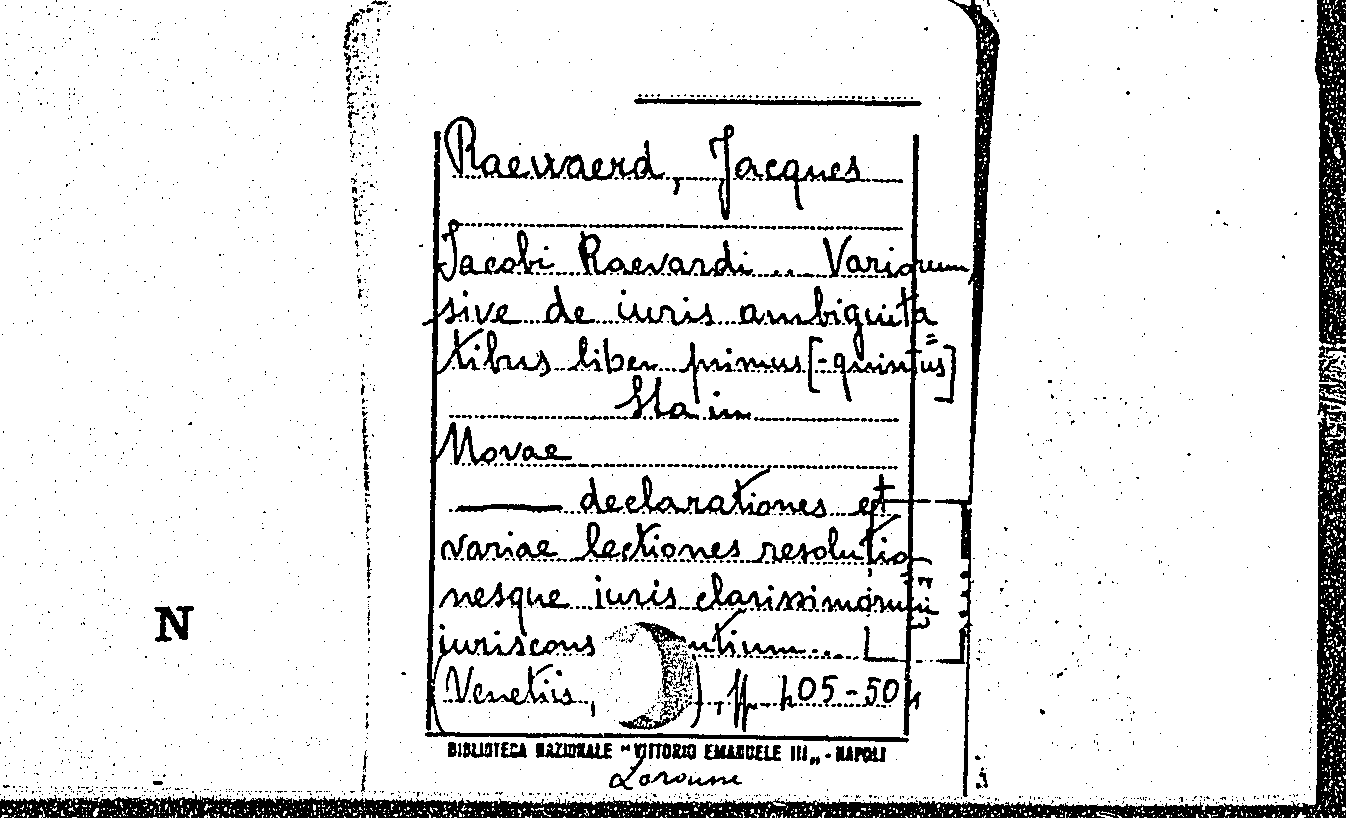 Raewaerd, Jacques
Jacobi Raevardi... Variorum
sive de iuris ambiguita=
tibus liber primus [-quintus]
Sta in
Novae
— declarationes et
variae lectiones resolutio=
nesque iuris clarissimorum
iuriscons ntium...
N
(Venetiis, ), ff. 405-504
BIBLIOTECA NAZIONALE "VITTORIO EMANUELE III„ - NAPOLI